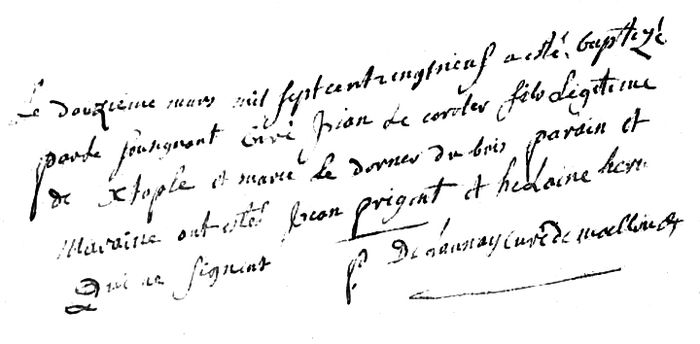 Le douzieme mars mil sept cent vingt neuf a esté baptizé
par le sousignant Curé Jean le coroler fils Légitime
de Xtople et marie Le dorner du bois parain et
Maraine ont estés Jean prigent et helaine heru
Qui ne signent P. De Launay curé de